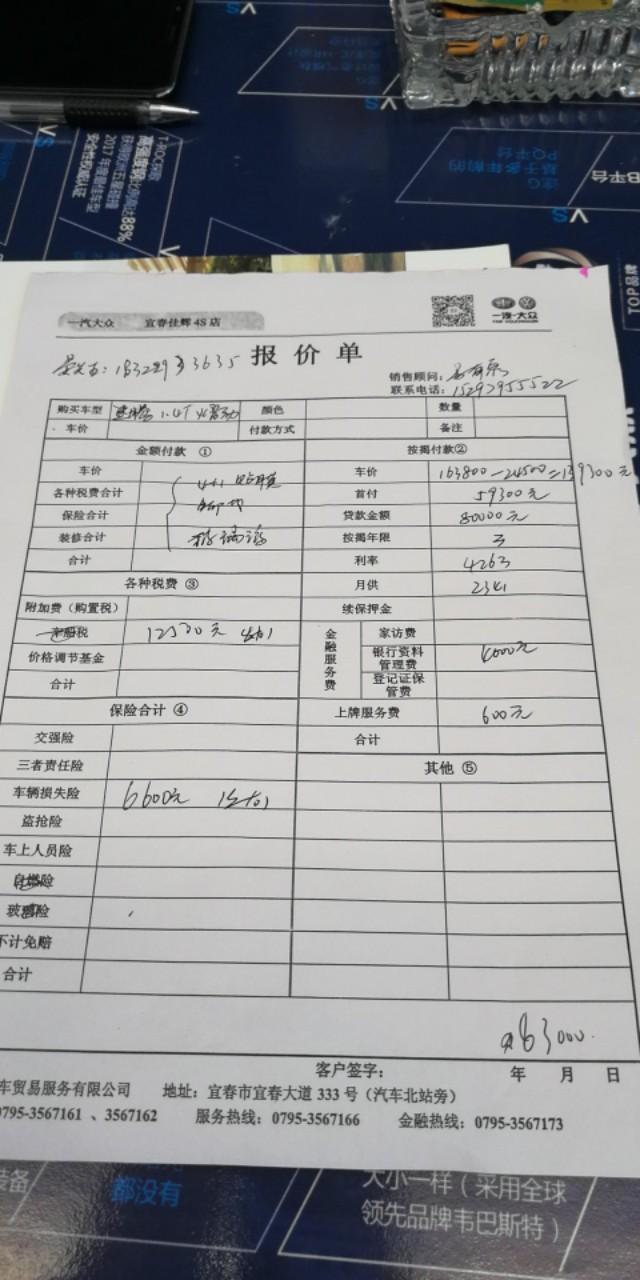 VS
高强度钢 88%
2017年度最佳车型
安全性权威认证
VS
途G
基于多年前的
PQ平台
VS
B平台
TOP品牌
一汽大众 宜春佳辉4S店
一汽-大众
报价单
销售顾问：
联系电话：15297955522
购买车型 1.4T 颜色 数量
车价 付款方式 备注
金额付款 ① 按揭付款②
车价 车价 163800-24500=139300元
各种税费合计 首付 59300元
保险合计 贷款金额 80000元
装修合计 按揭年限 三
合计 利率 4263
各种税费 ③ 月供 2341
附加费（购置税） 续保押金
税 12500元 左右 家访费
金融服务费 银行资料管理费 4000元
价格调节基金
合计 登记证保管费
保险合计 ④ 上牌服务费 600元
交强险 合计
三者责任险 其他 ⑤
车辆损失险 6600元 左右
盗抢险
车上人员险
玻璃险
不计免赔
合计
63000.
客户签字：
年 月 日
车贸易服务有限公司 地址：宜春市宜春大道333号（汽车北站旁）
0795-3567161 、3567162 服务热线：0795-3567166 金融热线：0795-3567173
装备
都没有
大小一样（采用全球
领先品牌韦巴斯特）